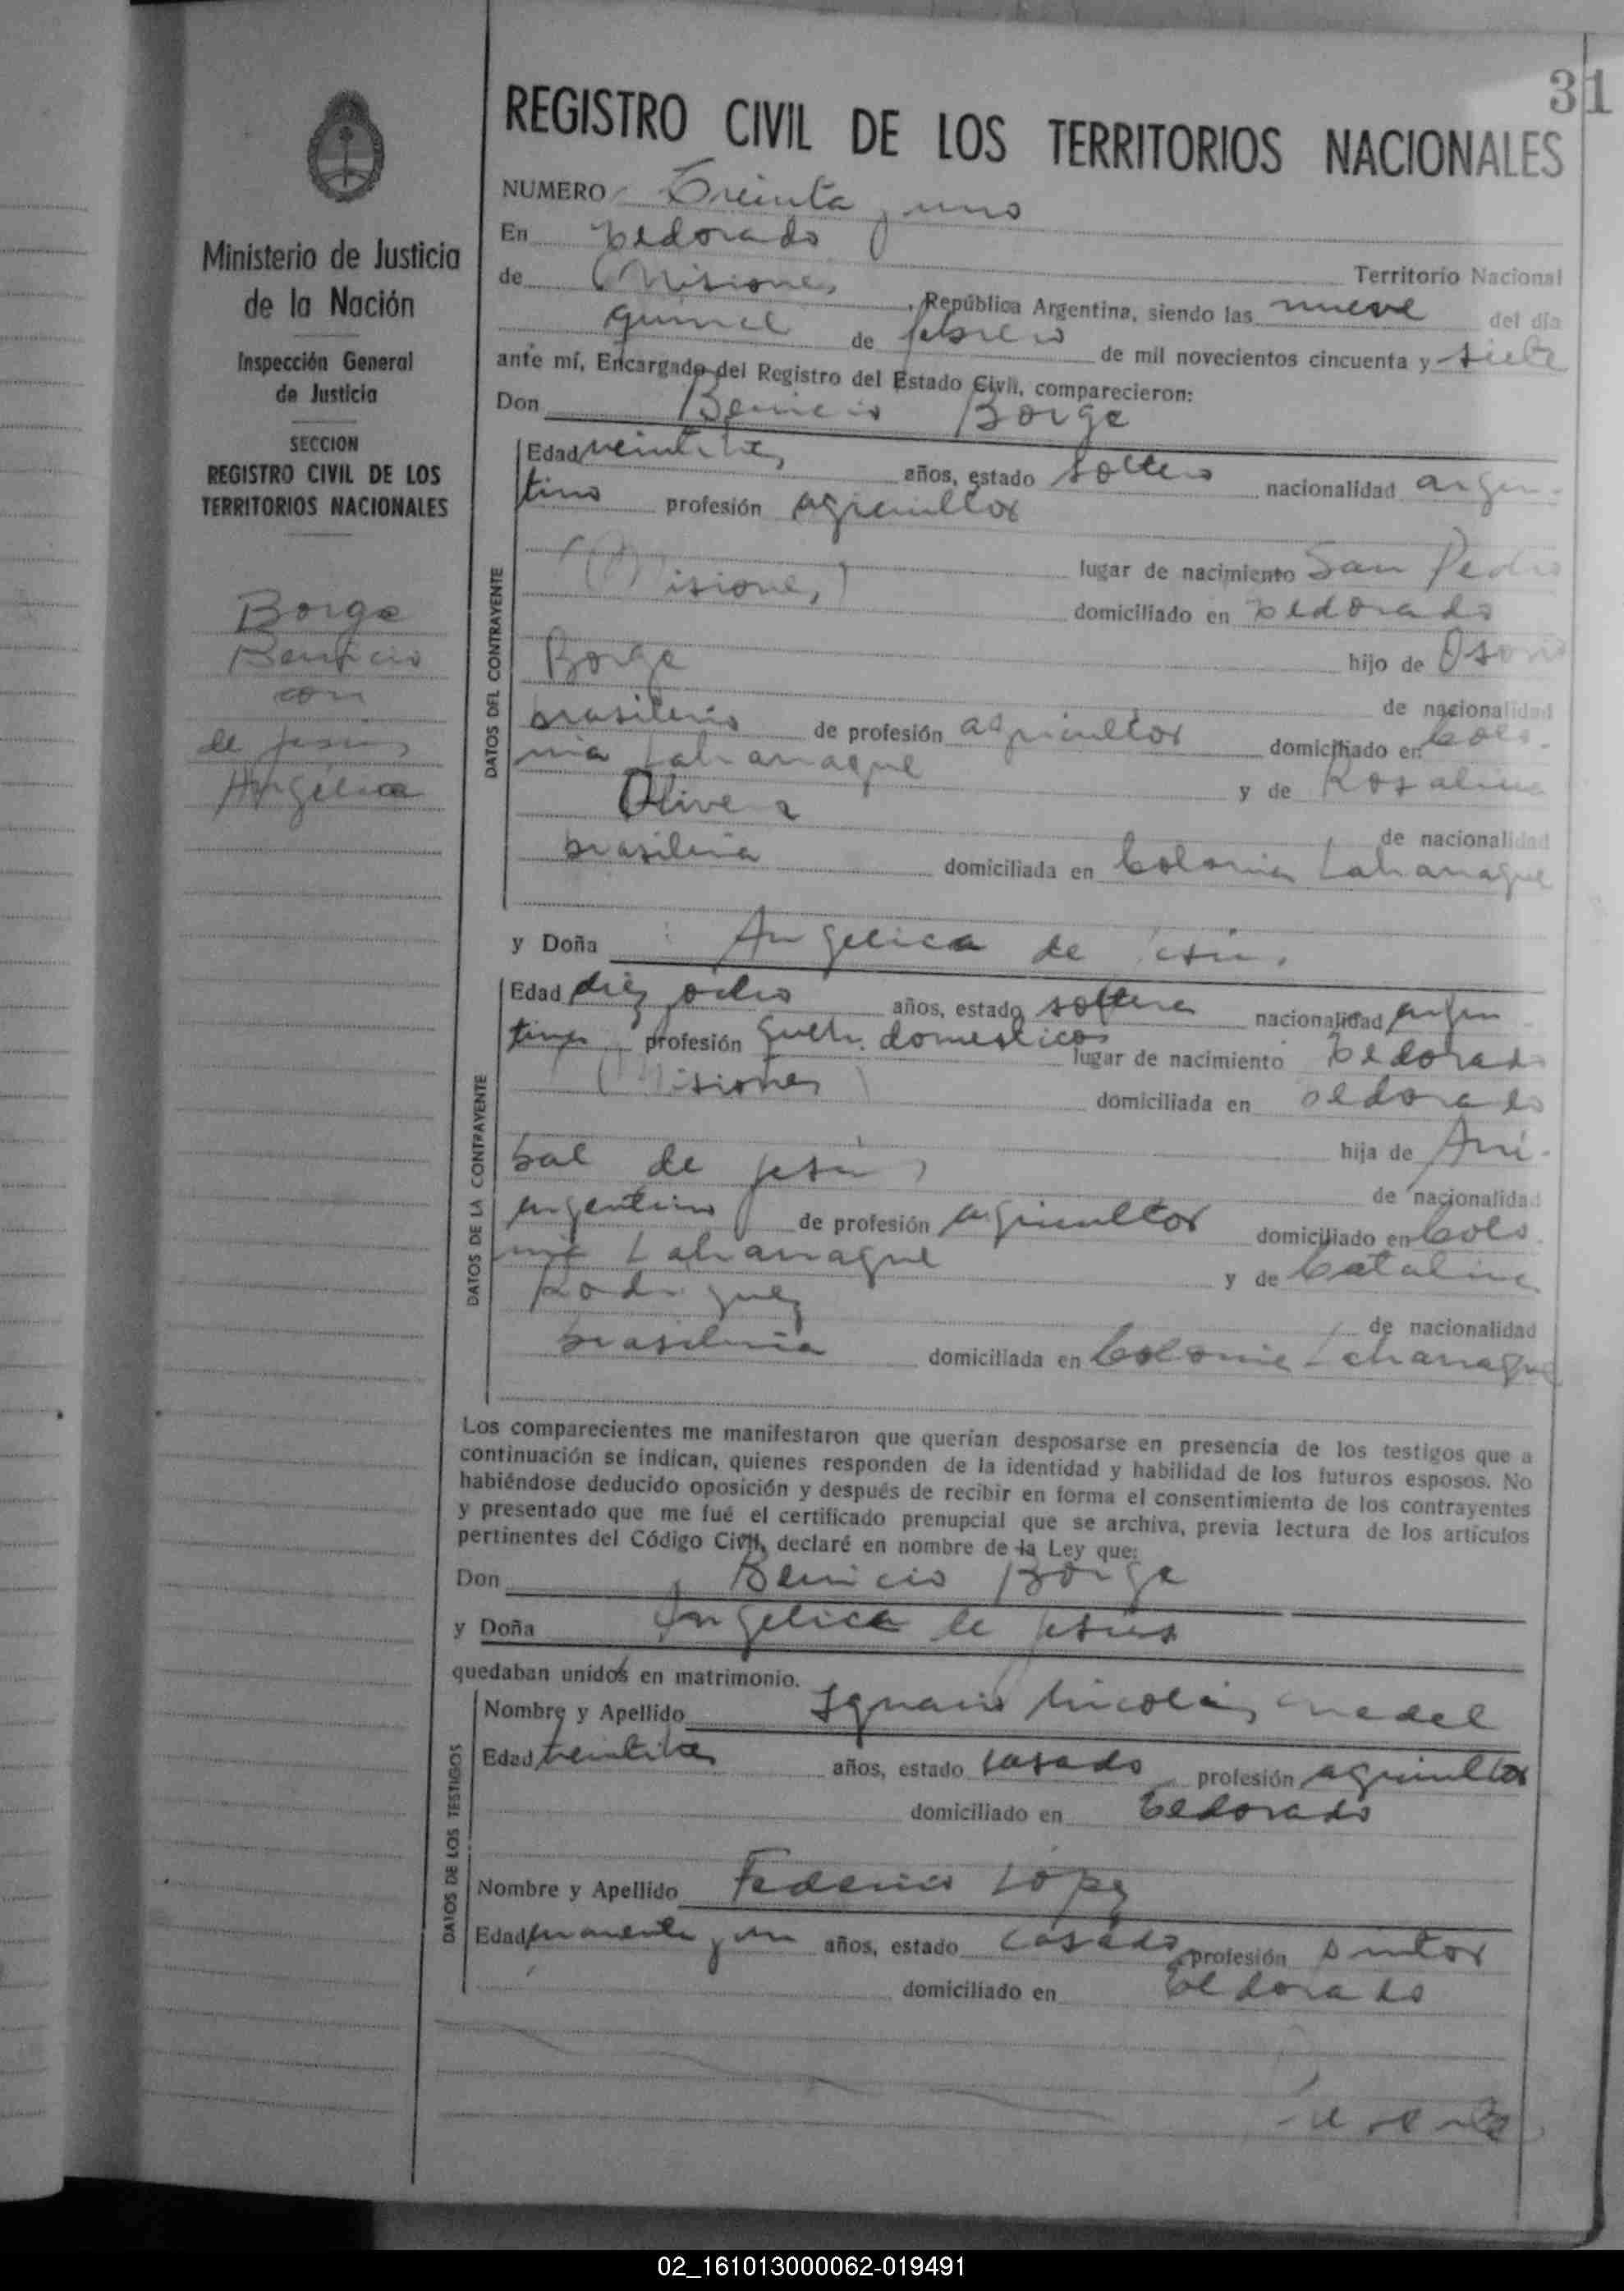 31
REGISTRO CIVIL DE LOS TERRITORIOS NACIONALES
Ministerio de Justicia
de la Nación
Inspección General
de Justicia
SECCION
REGISTRO CIVIL DE LOS
TERRITORIOS NACIONALES
Borge
Benicio
con
de Jesús
Angélica
NUMERO Treinta y uno
En Eldorado
Territorio Nacional
de Misiones, República Argentina, siendo las nueve del día
quince de febrero de mil novecientos cincuenta y siete
ante mí, Encargado del Registro del Estado Civil, comparecieron:
Don Benicio Borge
DATOS DEL CONTRAYENTE
Edad veintitres años, estado soltero nacionalidad argen-
tino profesión agricultor
lugar de nacimiento San Pedro
(Misiones)
domiciliado en Eldorado
hijo de
Borge
de nacionalidad
brasileño de profesión agricultor domiciliado en Colo-
nia Lahanague
y de Rosalina
Olivera
de nacionalidad
brasileña domiciliada en Colonia Lahanague
y Doña Angelica de Jesús
DATOS DE LA CONTRAYENTE
Edad diez y ocho años, estado soltera nacionalidad argen-
tina profesión domesticos
lugar de nacimiento Eldorado
(Misiones)
domiciliada en Eldorado
hija de Ani-
bal de Jesús
de nacionalidad
argentino de profesión agricultor domiciliado en Colo-
nia Lahanague
y de Catalina
Rodriguez
de nacionalidad
brasileña domiciliada en Colonia Lahanague
Los comparecientes me manifestaron que querían desposarse en presencia de los testigos que a
continuación se indican, quienes responden de la identidad y habilidad de los futuros esposos. No
habiéndose deducido oposición y después de recibir en forma el consentimiento de los contrayentes
y presentado que me fué el certificado prenupcial que se archiva, previa lectura de los artículos
pertinentes del Código Civil, declaré en nombre de la Ley que:
Don Benicio Borge
y Doña Angelica de Jesús
quedaban unidos en matrimonio.
DATOS DE LOS TESTIGOS
Nombre y Apellido Ignacio Nicolás
Edad veintitres años, estado casado profesión agricultor
domiciliado en Eldorado
Nombre y Apellido Federico López
Edad cuarenta y un años, estado casado profesión pintor
domiciliado en Eldorado
02_161013000062-019491